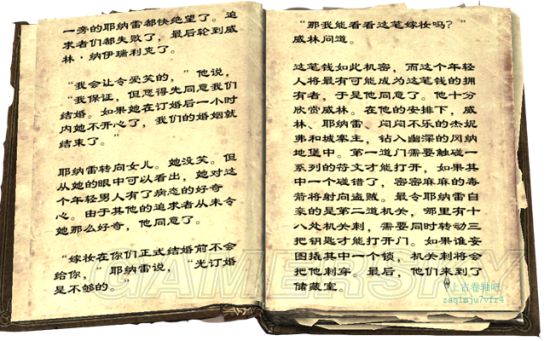 一旁的耶纳雷都快绝望了。追
求者们都失败了，最后轮到威
林·纳伊瑞利克了。
“我会让令爱笑的，”他说，
“我保证，但您得先同意我们
结婚。如果她在订婚后一小时
内她不开心了，我们的婚姻就
结束了。”
耶纳雷转向女儿。她没笑。但
从她的眼中可以看出，她对这
个年轻男人有了病态的好奇
心。由于其他的追求者从未令
她那么好奇，他同意了。
“嫁妆在你们正式结婚前不会
给你，”耶纳雷说，“光订婚
是不够的。”
“那我能看看这笔嫁妆吗？”
威林问道。
这笔钱如此机密，而这个年轻
人将最有可能成为这笔钱的拥
有者，于是他同意了。他十分
欣赏威林。在他的安排下，威
林、耶纳雷、闷闷不乐的杰妮
弗和城寨主，钻入幽深的风纳
地堡中。第一道门需要触碰一
系列的符文才能打开，如果其
中一个碰错了，密密麻麻的毒
箭将射向盗贼。最令耶纳雷自
豪的是第二道机关，哪里有十
八处机关刺，需要同时转动三
把钥匙才能打开门。如果谁妄
图撬其中一个锁，机关刺将会
把他刺穿。最后，他们来到了
储藏室。
GAMERSKY
@上古卷轴吧
zaq1mju7vfr4